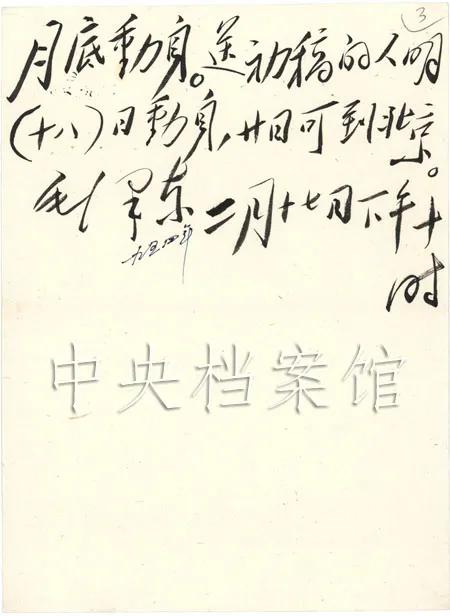 3
月底動身。送初稿的人明
(十八)日動身,廿日可到北京。
毛澤东 二月十七日下午十时
一九五四年
中央档案馆